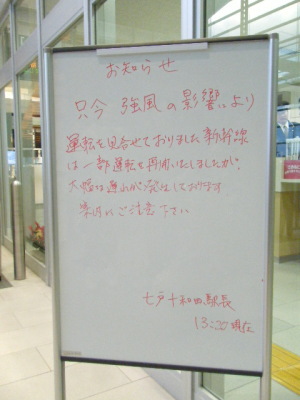 お知らせ
只今 強風の影響により
運転を見合せておりました新幹線
は一部運転を再開いたしましたが、
大幅な遅れが発生しております
案内にご注意下さい
七戸十和田駅長
13:00現在